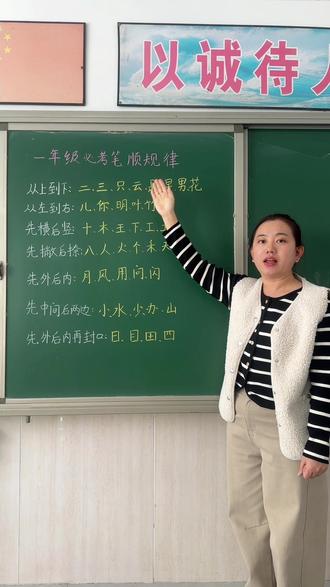 以诚待人
一年级必考笔顺规律
从上到下：二、三、只、云、星、男、花
从左到右：儿、你、明、叶、竹
先横后竖：十、木、王、下、工
先撇后捺：八、人、火、个、禾、天
先外后内：月、风、用、问、闪
先中间后两边：小、水、少、办、山
先外后内再封口：日、目、田、四